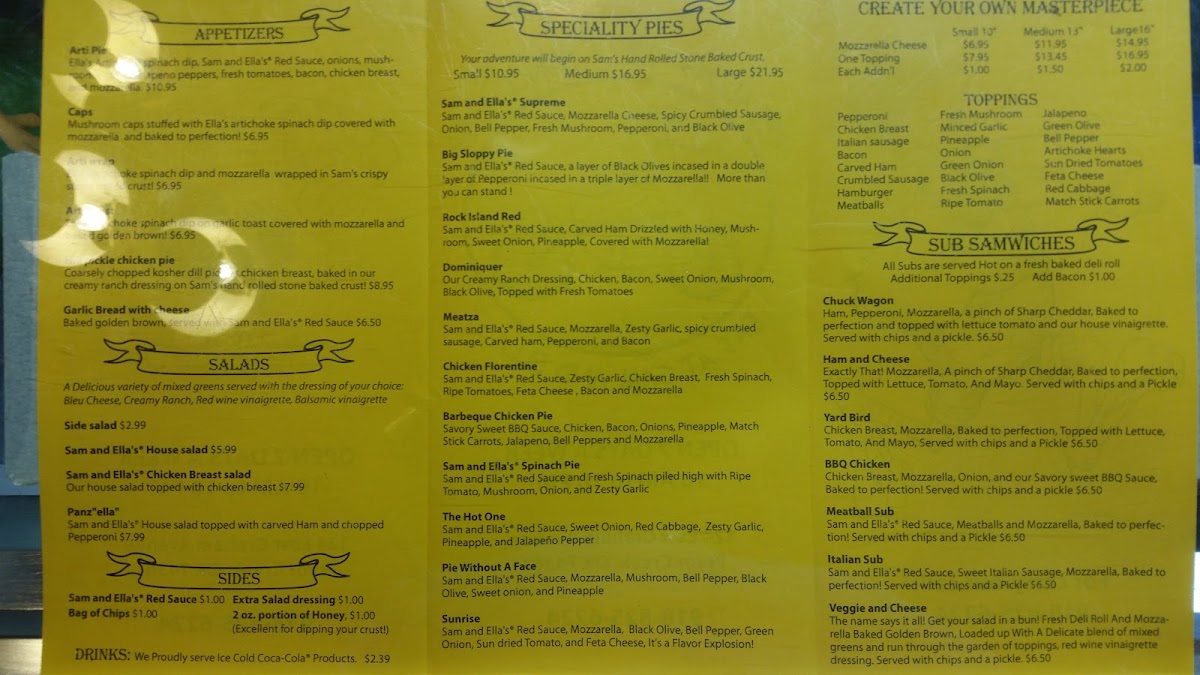 APPETIZERS
Arti Pie
Ella's spinach dip, Sam and Ella's® Red Sauce, onions, mush-
jalapeno peppers, fresh tomatoes, bacon, chicken breast,
and mozzarella. $10.95
Caps
Mushroom caps stuffed with Ella's artichoke spinach dip covered with
mozzarella and baked to perfection! $6.95
Arti wrap
spinach dip and mozzarella wrapped in Sam's crispy
crust! $6.95
spinach dip on garlic toast covered with mozzarella and
golden brown! $6.95
pickle chicken pie
Coarsely chopped kosher dill chicken breast, baked in our
creamy ranch dressing on Sam's hand rolled stone baked crust! $8.95
Garlic Bread with cheese
Baked golden brown, served with Sam and Ella's® Red Sauce $6.50
SALADS
A Delicious variety of mixed greens served with the dressing of your choice:
Bleu Cheese, Creamy Ranch, Red wine vinaigrette, Balsamic vinaigrette
Side salad $2.99
Sam and Ella's® House salad $5.99
Sam and Ella's® Chicken Breast salad
Our house salad topped with chicken breast $7.99
Panz"ella"
Sam and Ella's® House salad topped with carved Ham and chopped
Pepperoni $7.99
SIDES
Sam and Ella's® Red Sauce $1.00 Extra Salad dressing $1.00
Bag of Chips $1.00 2 oz. portion of Honey, $1.00
(Excellent for dipping your crust!)
DRINKS: We Proudly serve Ice Cold Coca-Cola® Products. $2.39
SPECIALITY PIES
Your adventure will begin on Sam's Hand Rolled Stone Baked Crust.
Small $10.95 Medium $16.95 Large $21.95
Sam and Ella's® Supreme
Sam and Ella's® Red Sauce, Mozzarella Cheese, Spicy Crumbled Sausage,
Onion, Bell Pepper, Fresh Mushroom, Pepperoni, and Black Olive
Big Sloppy Pie
Sam and Ella's® Red Sauce, a layer of Black Olives incased in a double
layer of Pepperoni incased in a triple layer of Mozzarella!! More than
you can stand !
Rock Island Red
Sam and Ella's® Red Sauce, Carved Ham Drizzled with Honey, Mush-
room, Sweet Onion, Pineapple, Covered with Mozzarella!
Dominiquer
Our Creamy Ranch Dressing, Chicken, Bacon, Sweet Onion, Mushroom,
Black Olive, Topped with Fresh Tomatoes
Meatza
Sam and Ella's® Red Sauce, Mozzarella, Zesty Garlic, spicy crumbled
sausage, Carved ham, Pepperoni, and Bacon
Chicken Florentine
Sam and Ella's® Red Sauce, Zesty Garlic, Chicken Breast, Fresh Spinach,
Ripe Tomatoes, Feta Cheese , Bacon and Mozzarella
Barbeque Chicken Pie
Savory Sweet BBQ Sauce, Chicken, Bacon, Onions, Pineapple, Match
Stick Carrots, Jalapeno, Bell Peppers and Mozzarella
Sam and Ella's® Spinach Pie
Sam and Ella's® Red Sauce and Fresh Spinach piled high with Ripe
Tomato, Mushroom, Onion, and Zesty Garlic
The Hot One
Sam and Ella's® Red Sauce, Sweet Onion, Red Cabbage, Zesty Garlic,
Pineapple, and Jalapeño Pepper
Pie Without A Face
Sam and Ella's® Red Sauce, Mozzarella, Mushroom, Bell Pepper, Black
Olive, Sweet onion, and Pineapple
Sunrise
Sam and Ella's® Red Sauce, Mozzarella, Black Olive, Bell Pepper, Green
Onion, Sun dried Tomato, and Feta Cheese, It's a Flavor Explosion!
CREATE YOUR OWN MASTERPIECE
Small 10" Medium 13" Large16"
Mozzarella Cheese $6.95 $11.95 $14.95
One Topping $7.95 $13.45 $16.95
Each Addn'l $1.00 $1.50 $2.00
TOPPINGS
Pepperoni Fresh Mushroom Jalapeno
Chicken Breast Minced Garlic Green Olive
Italian sausage Pineapple Bell Pepper
Bacon Onion Artichoke Hearts
Carved Ham Green Onion Sun Dried Tomatoes
Crumbled Sausage Black Olive Feta Cheese
Hamburger Fresh Spinach Red Cabbage
Meatballs Ripe Tomato Match Stick Carrots
SUB SAMWICHES
All Subs are served Hot on a fresh baked deli roll
Additional Toppings $.25 Add Bacon $1.00
Chuck Wagon
Ham, Pepperoni, Mozzarella, a pinch of Sharp Cheddar, Baked to
perfection and topped with lettuce tomato and our house vinaigrette.
Served with chips and a pickle. $6.50
Ham and Cheese
Exactly That! Mozzarella, A pinch of Sharp Cheddar, Baked to perfection,
Topped with Lettuce, Tomato, And Mayo. Served with chips and a Pickle
$6.50
Yard Bird
Chicken Breast, Mozzarella, Baked to perfection, Topped with Lettuce,
Tomato, And Mayo, Served with chips and a Pickle $6.50
BBQ Chicken
Chicken Breast, Mozzarella, Onion, and our Savory sweet BBQ Sauce,
Baked to perfection! Served with chips and a pickle $6.50
Meatball Sub
Sam and Ella's® Red Sauce, Meatballs and Mozzarella, Baked to perfec-
tion! Served with chips and a Pickle $6.50
Italian Sub
Sam and Ella's® Red Sauce, Sweet Italian Sausage, Mozzarella, Baked to
perfection! Served with chips and a Pickle $6.50
Veggie and Cheese
The name says it all! Get your salad in a bun! Fresh Deli Roll And Mozza-
rella Baked Golden Brown, Loaded up With A Delicate blend of mixed
greens and run through the garden of toppings, red wine vinaigrette
dressing. Served with chips and a pickle. $6.50